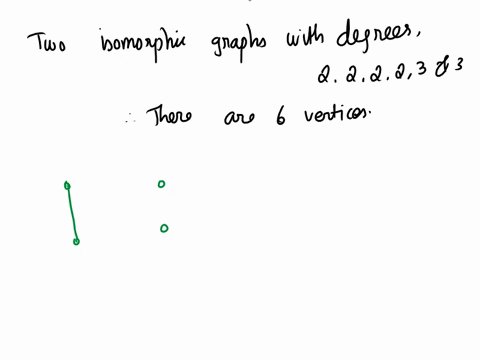 Two isomorphic graphs with degrees,
2. 2. 2. 2, 3 & 3
∴ There are 6 vertices.